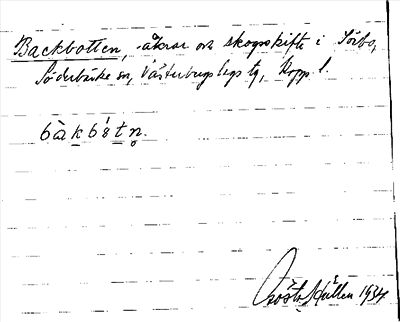 Backbotten, åkrar o. skogsskifte i Sörbo,
Söderbärke sn, Västerbergslags tg, Kopp. l.
bàkbòtn.
Gösta Hallén 1934